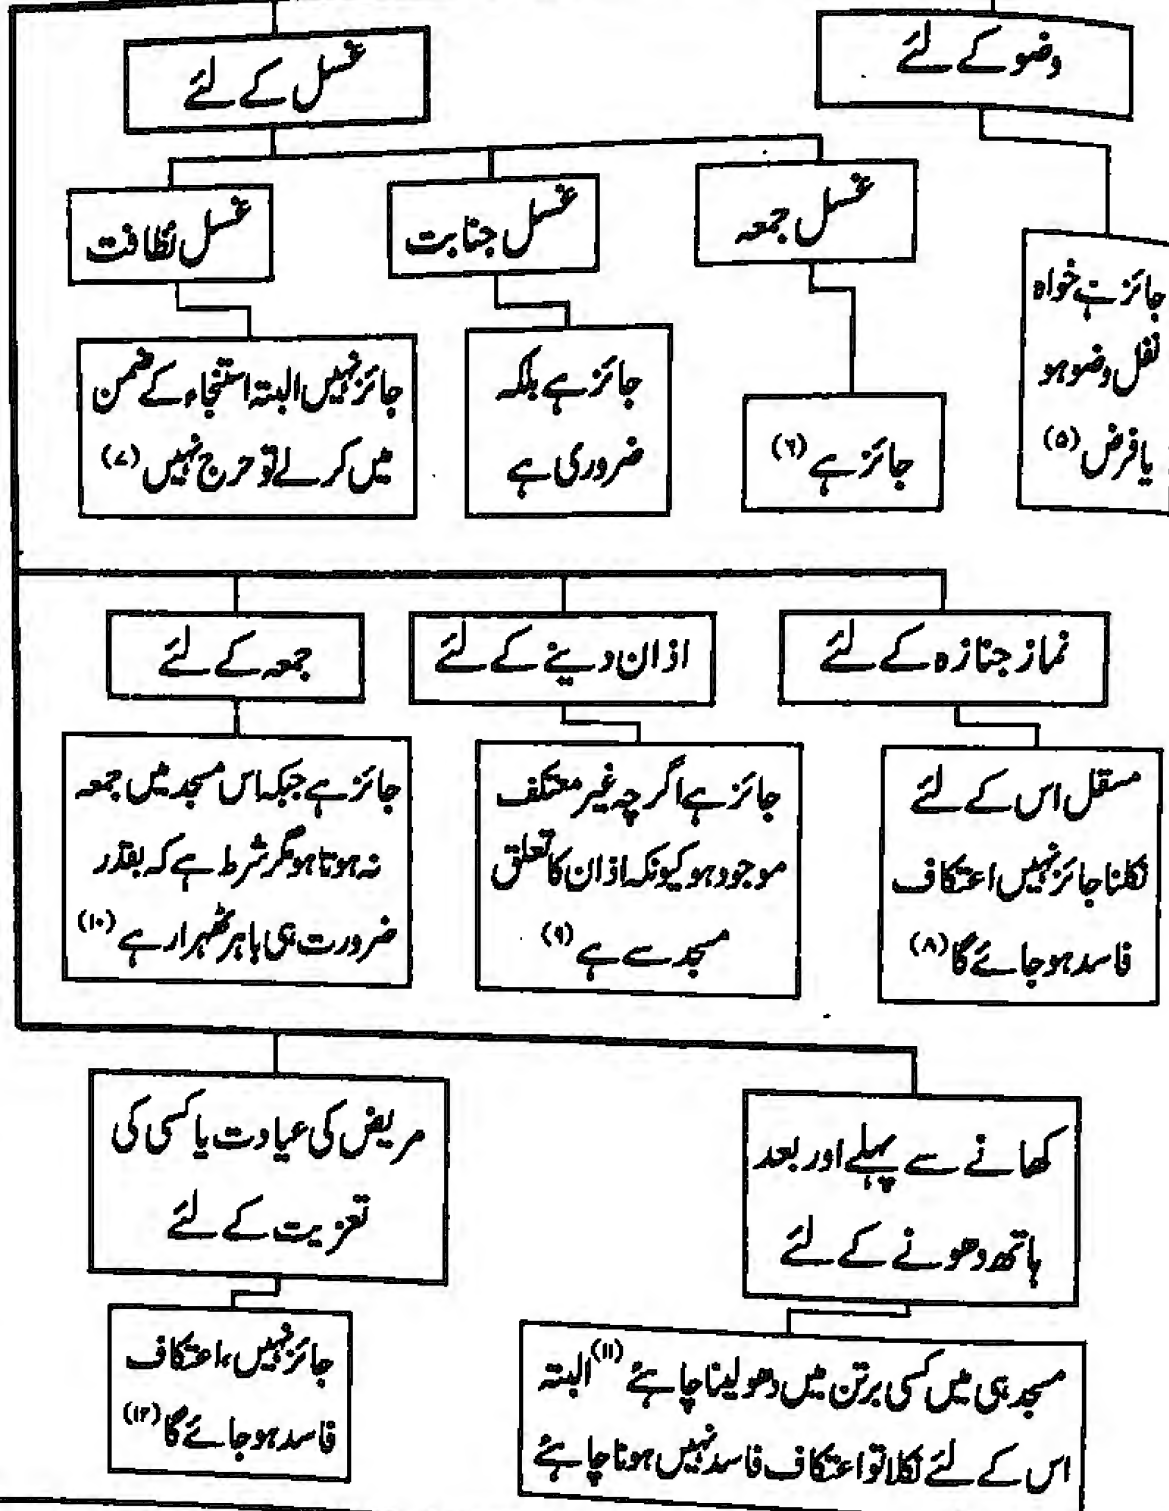 وضو کے لئے
جائز ہے خواہ
نفل وضو ہو
یا فرض (۵)
غسل کے لئے
غسل جمعہ
جائز ہے (۶)
غسل جنابت
جائز ہے بلکہ
ضروری ہے
غسل نظافت
جائز نہیں البتہ استنجاء کے ضمن
میں کر لے تو حرج نہیں (۷)
نماز جنازہ کے لئے
مستقل اس کے لئے
نکلنا جائز نہیں اعتکاف
فاسد ہو جائے گا (۸)
اذان دینے کے لئے
جائز ہے اگر چہ غیر معتکف
موجود ہو کیونکہ اذان کا تعلق
مسجد سے ہے (۹)
جمعہ کے لئے
جائز ہے جبکہ اس مسجد میں جمعہ
نہ ہوتا ہو مگر شرط ہے کہ بقدر
ضرورت ہی باہر ٹھہرا رہے (۱۰)
کھانے سے پہلے اور بعد
ہاتھ دھونے کے لئے
مسجد ہی میں کسی برتن میں دھو لینا چاہئے (۱۱) البتہ
اس کے لئے نکلا تو اعتکاف فاسد نہیں ہونا چاہئے
مریض کی عیادت یا کسی کی
تعزیت کے لئے
جائز نہیں، اعتکاف
فاسد ہو جائے گا (۱۲)